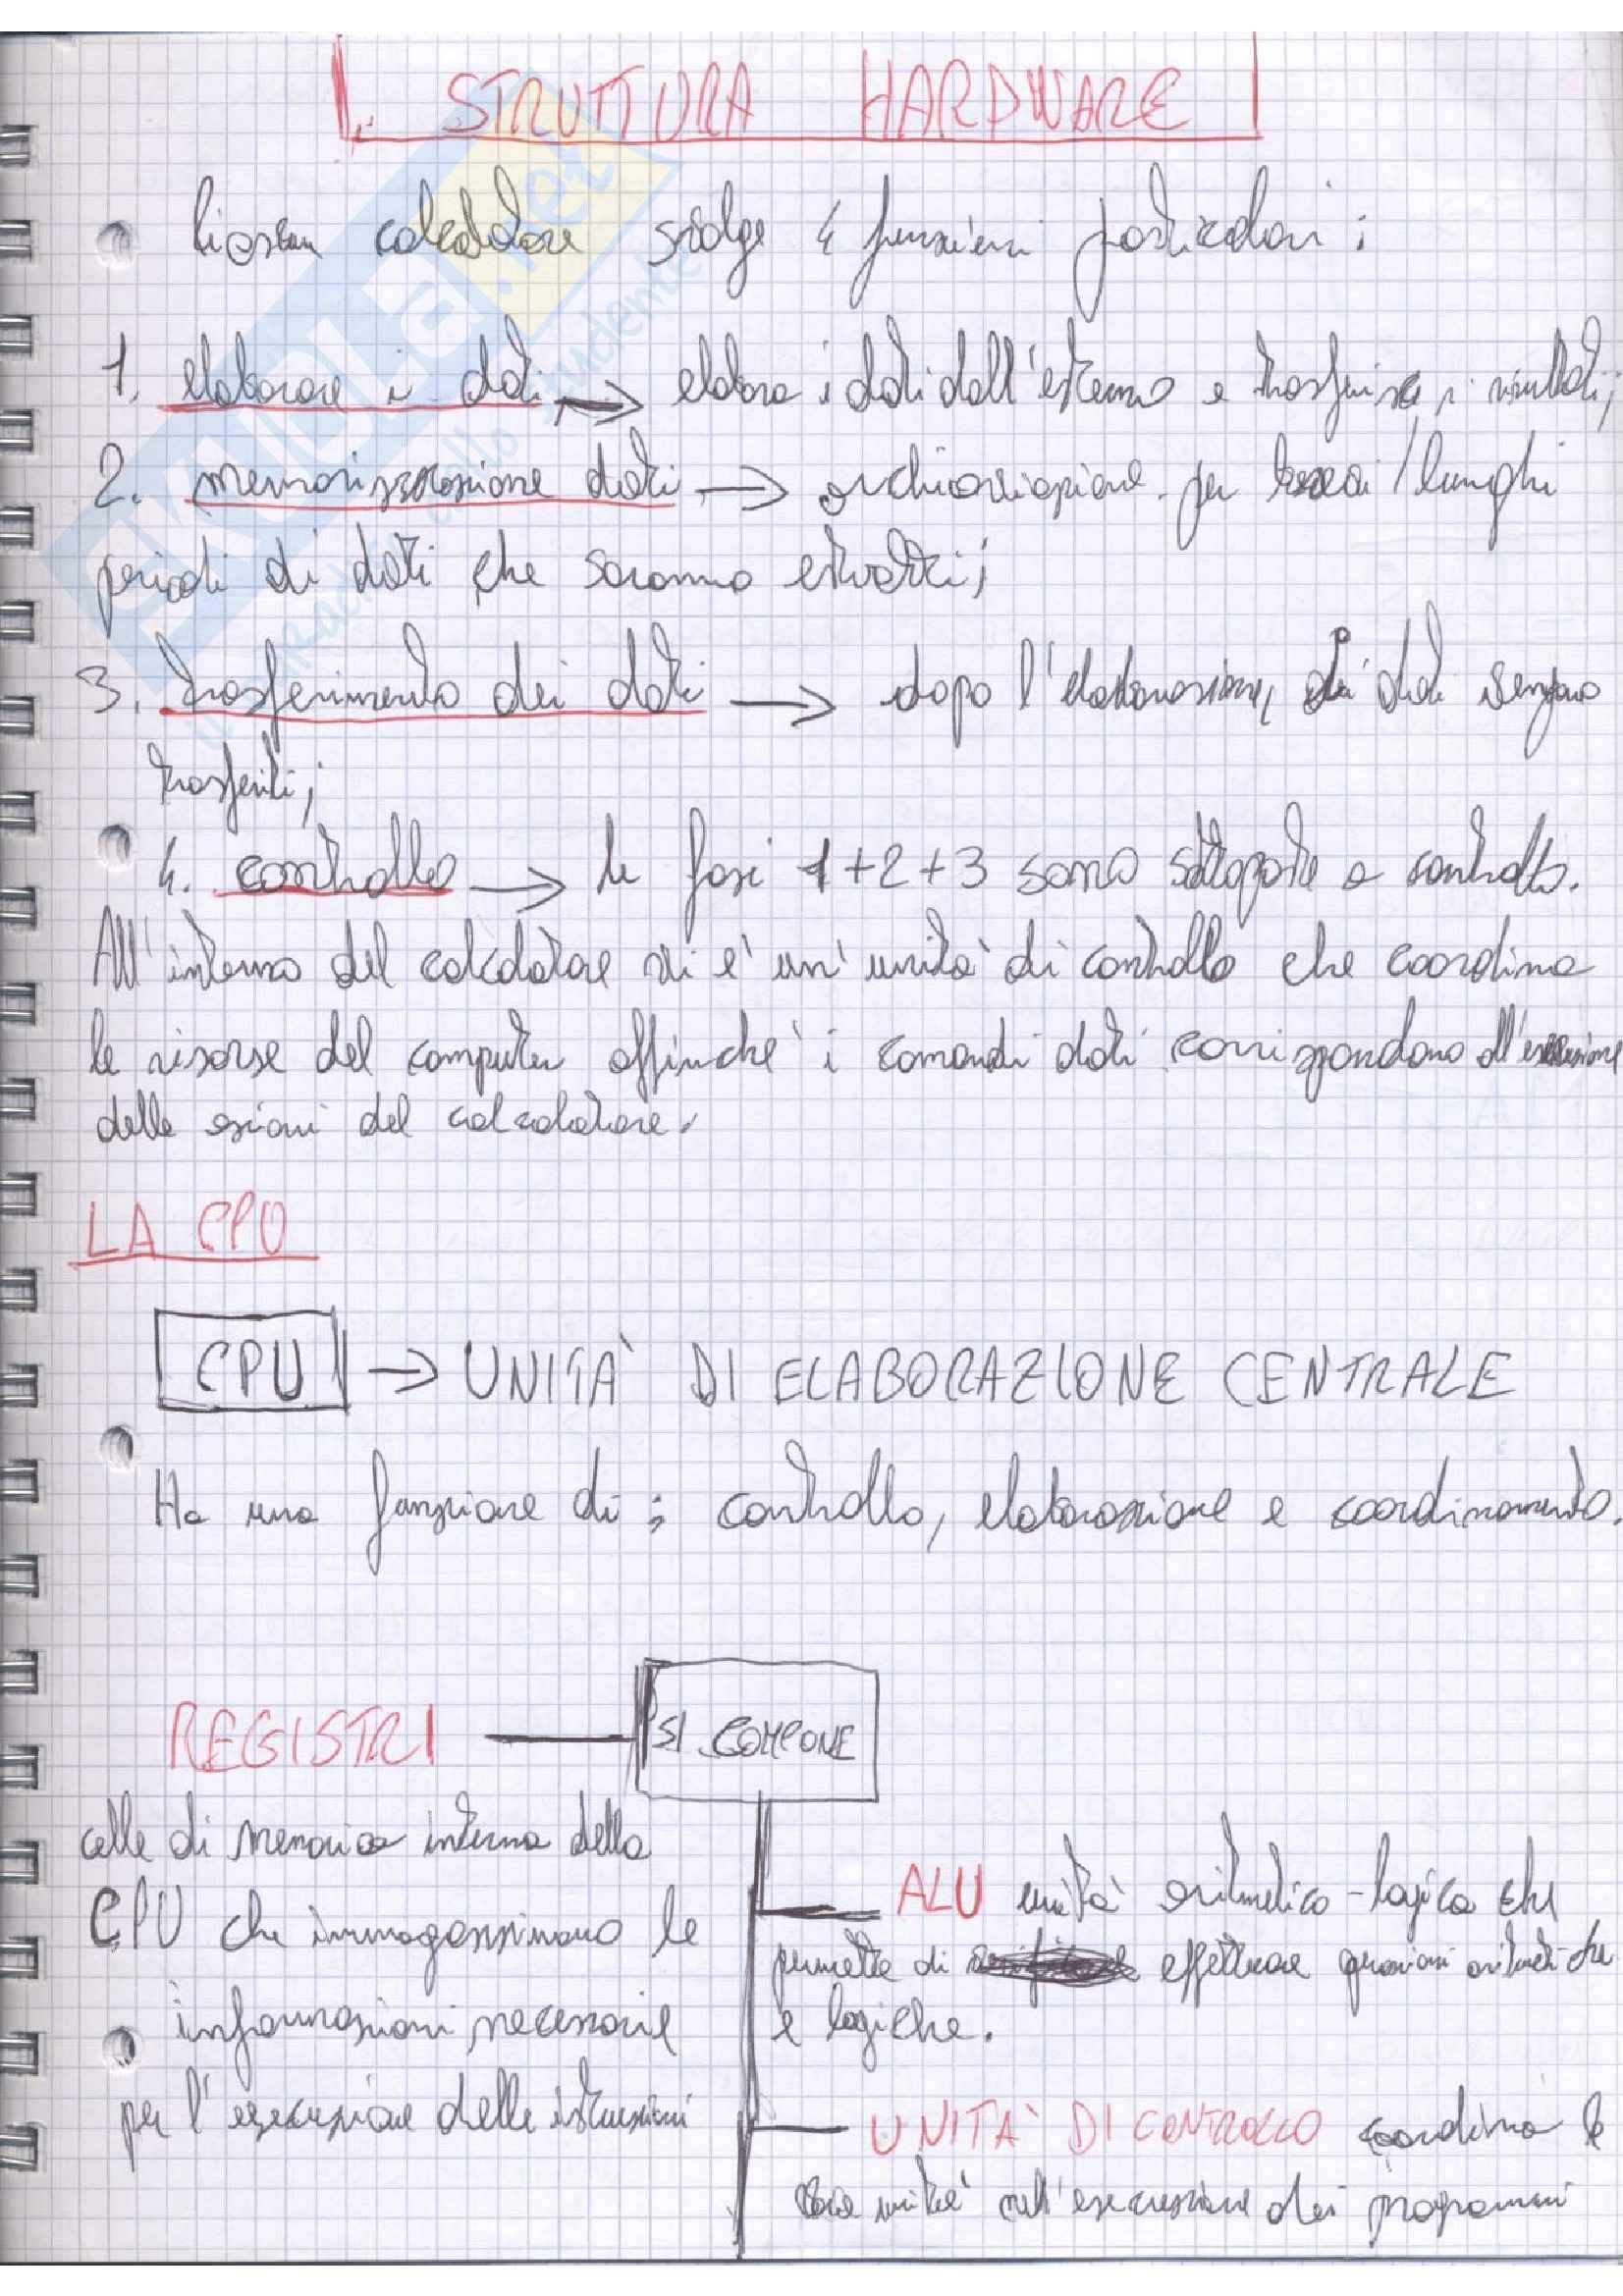 STRUTTURA HARDWARE
Ciascun calcolatore svolge 4 funzioni particolari:
1. elaborare i dati → elabora i dati dall'esterno e trasferisce i risultati;
2. memorizzazione dati → archiviazione per brevi/lunghi
periodi di dati che saranno estratti;
3. trasferimento dei dati → dopo l'elaborazione, i dati vengono
trasferiti;
4. controllo → le fasi 1+2+3 sono sottoposte a controllo.
All'interno del calcolatore vi è un'unità di controllo che coordina
le risorse del computer affinché i comandi dati corrispondano all'esecuzione
delle azioni del calcolatore.
LA CPU
CPU → UNITÀ DI ELABORAZIONE CENTRALE
Ha una funzione di: controllo, elaborazione e coordinamento.
REGISTRI
SI COMPONE
celle di memoria interna della
CPU che immagazzinano le
informazioni necessarie
per l'esecuzione delle istruzioni
ALU unità aritmetico-logica che
permette di effettuare operazioni aritmetiche
e logiche.
UNITÀ DI CONTROLLO coordina le
varie unità nell'esecuzione dei programmi
SKUOLA.net
il paradiso dello studente